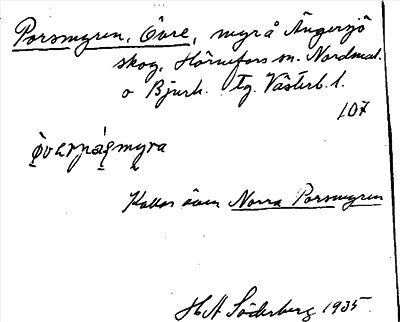 Porsmyren, Övre, myr å Ängersjö
skog, Hörnefors sn. Nordmal.
o Bjurh. tg. Västerb. l.
107
Kallas även Norra Porsmyren
H A Söderberg 1935.